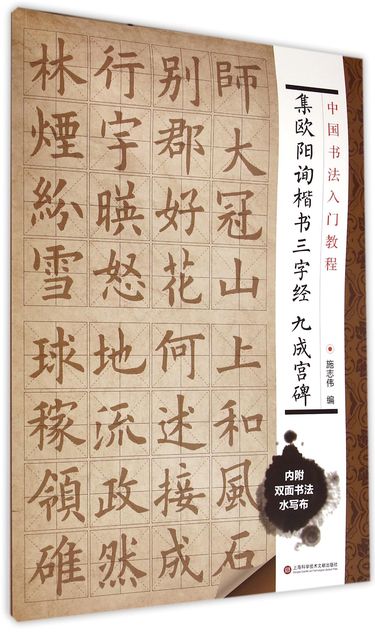 中国书法入门教程
集欧阳询楷书三字经 九成宫碑
施志伟 编
内附
双面书法
水写布
上海科学技术文献出版社
師大冠山上和風石
別郡好花何述接成
行宇暎怒地流政然
林煙紛雪球稼領碓